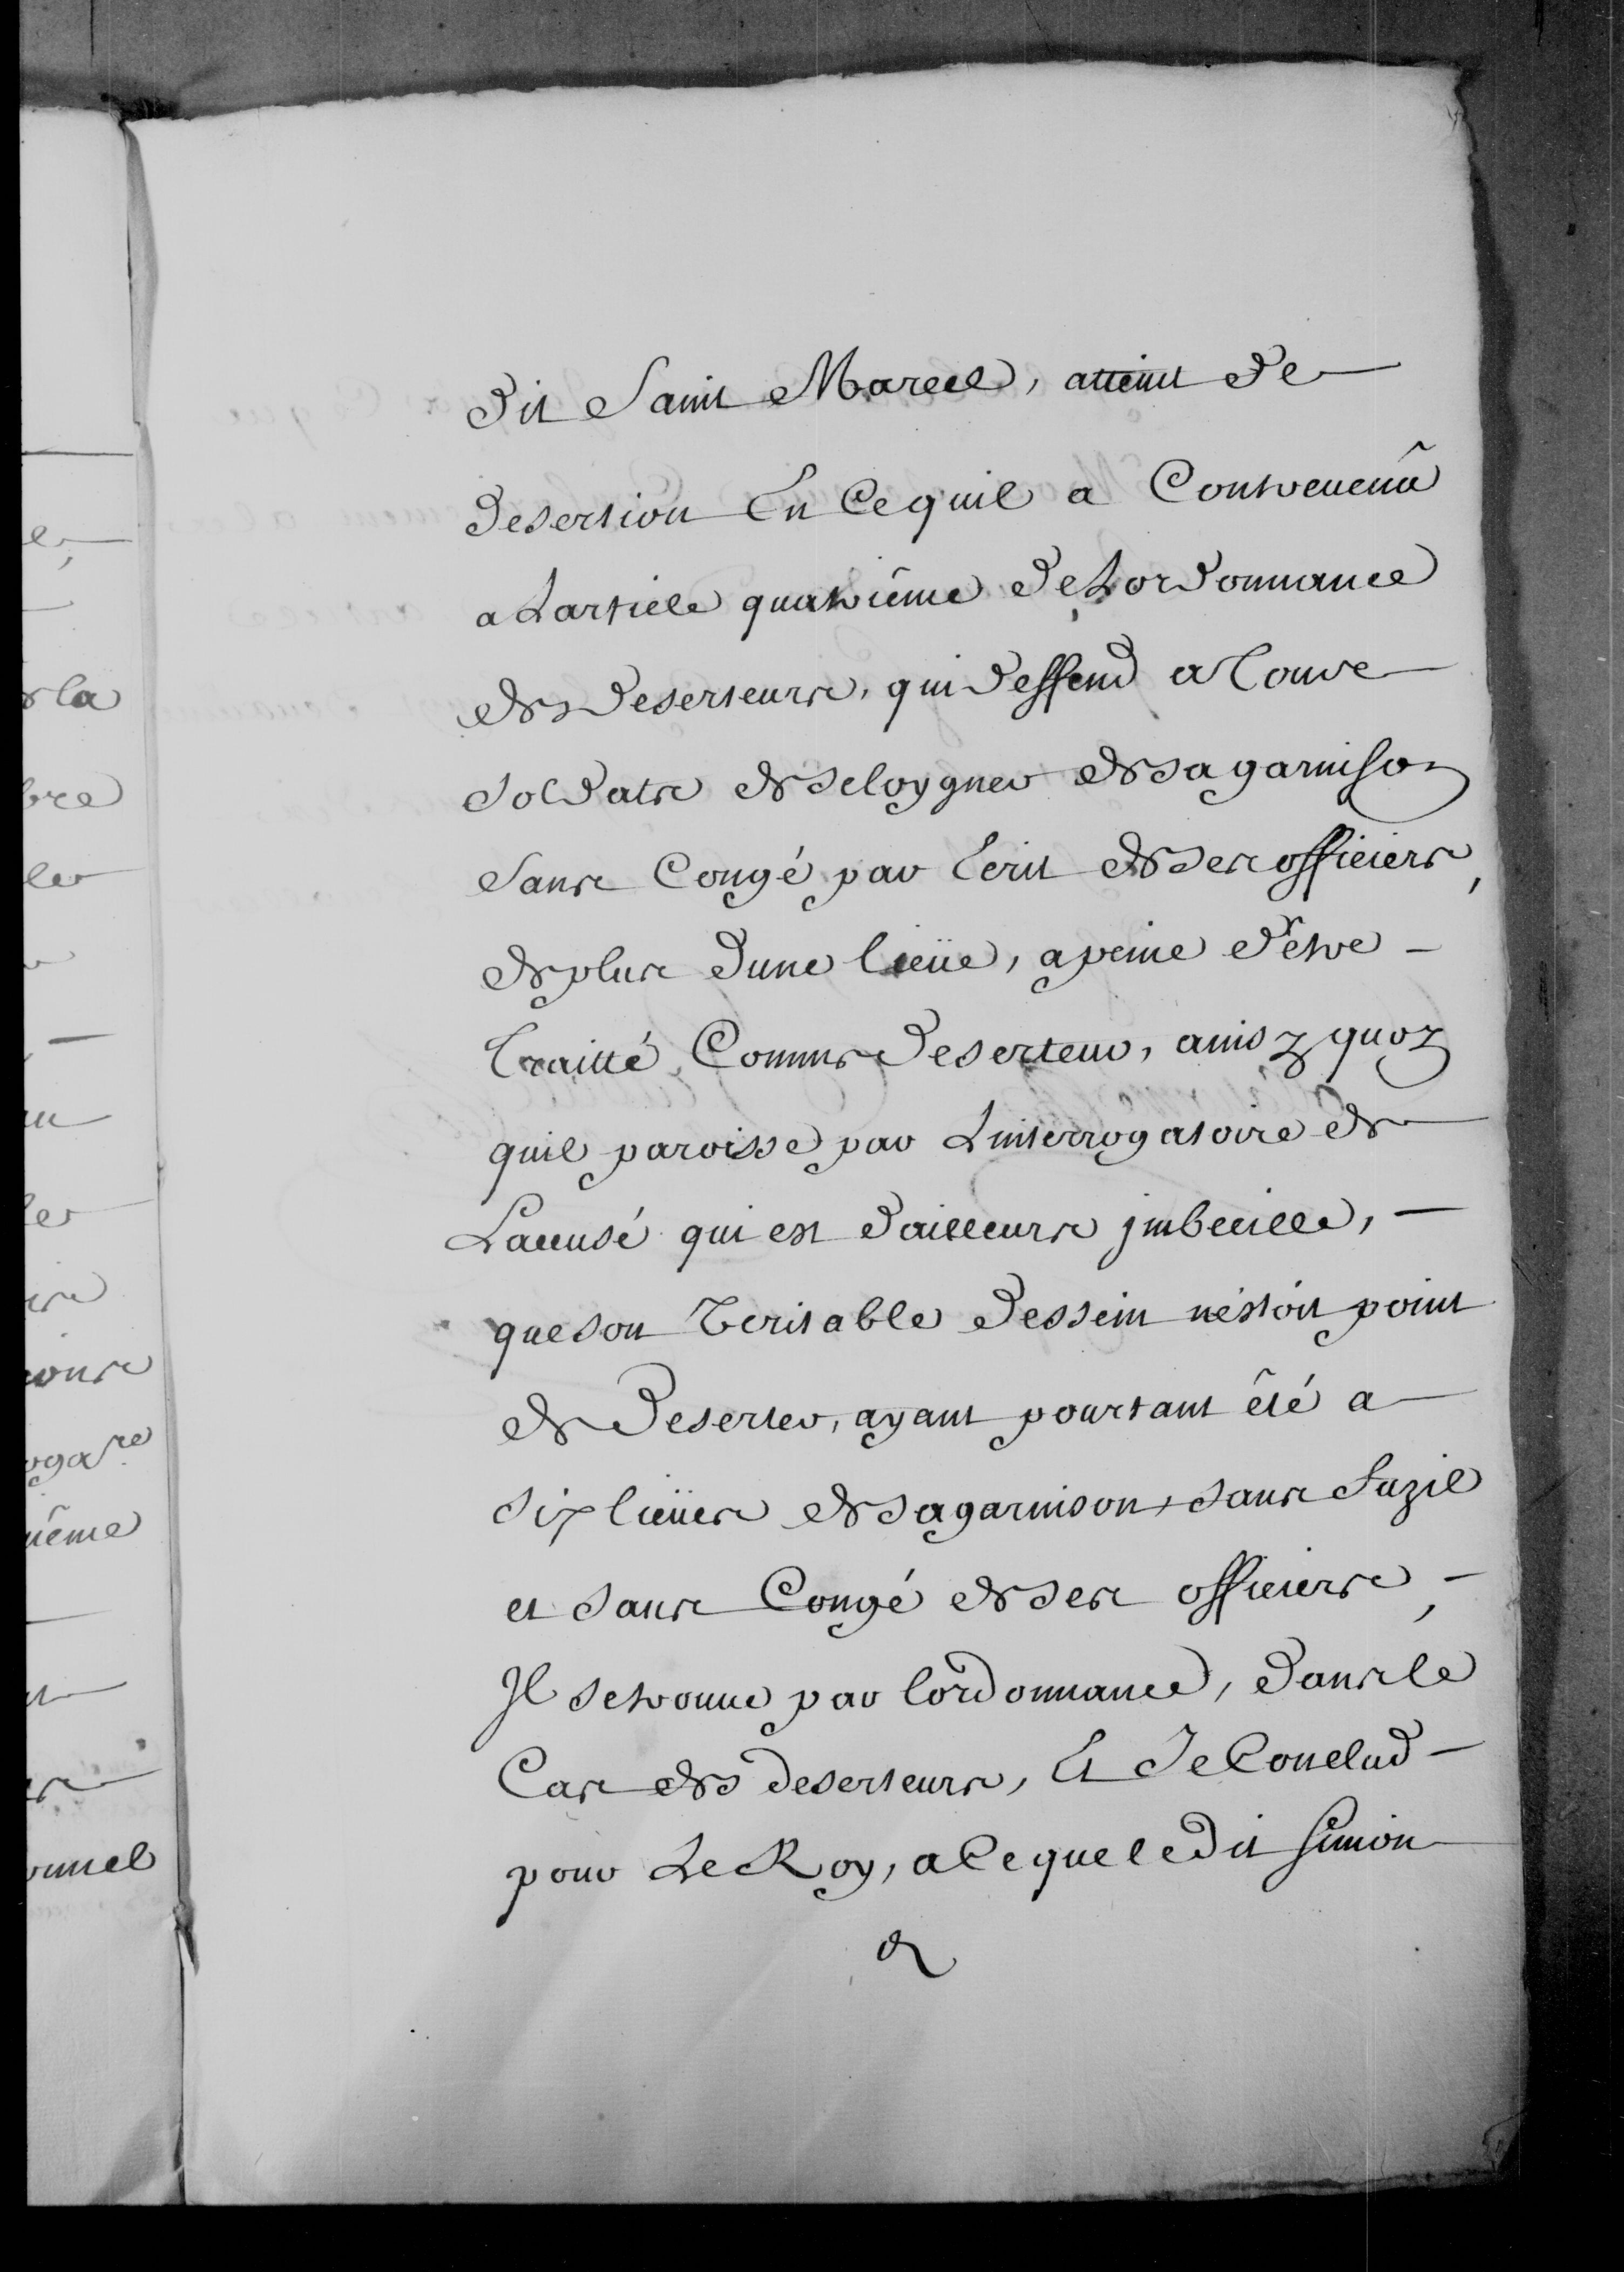 dit Saint Marcel, atteint de
desertion En Ce quil a Contrevenû
a Larticle quatriême de Lordonnance
des deserteurs, qui deffend a tous
soldats de seloygner de sa garnison
sans Congé par Ecrit de ses officiers,
de plus dune lieüe, a peine d'estre
traitté Comme deserteur, ainsy quoy
quil paroisse par Linterrogatoire de
Laccusé qui est dailleurs jmbecille,
que son veritable dessein n'estoit point
de deserter, ayant pourtant êté a
six lieües de sa garnison, sans fuzil
et sans Congé de ses officiers,
Il se trouve par lordonnance, dans le
Cas des deserteurs, Et Je Conclud
pour Le Roy, a Ce que ledit Simon
la
bre
ler
ler
ogare
même
onnel